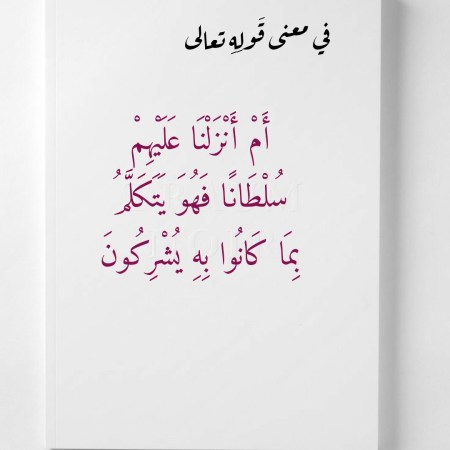 في معنى قَولِه تعالى
أَمْ أَنْزَلْنَا عَلَيْهِمْ
سُلْطَانًا فَهُوَ يَتَكَلَّمُ
بِمَا كَانُوا بِهِ يُشْرِكُونَ